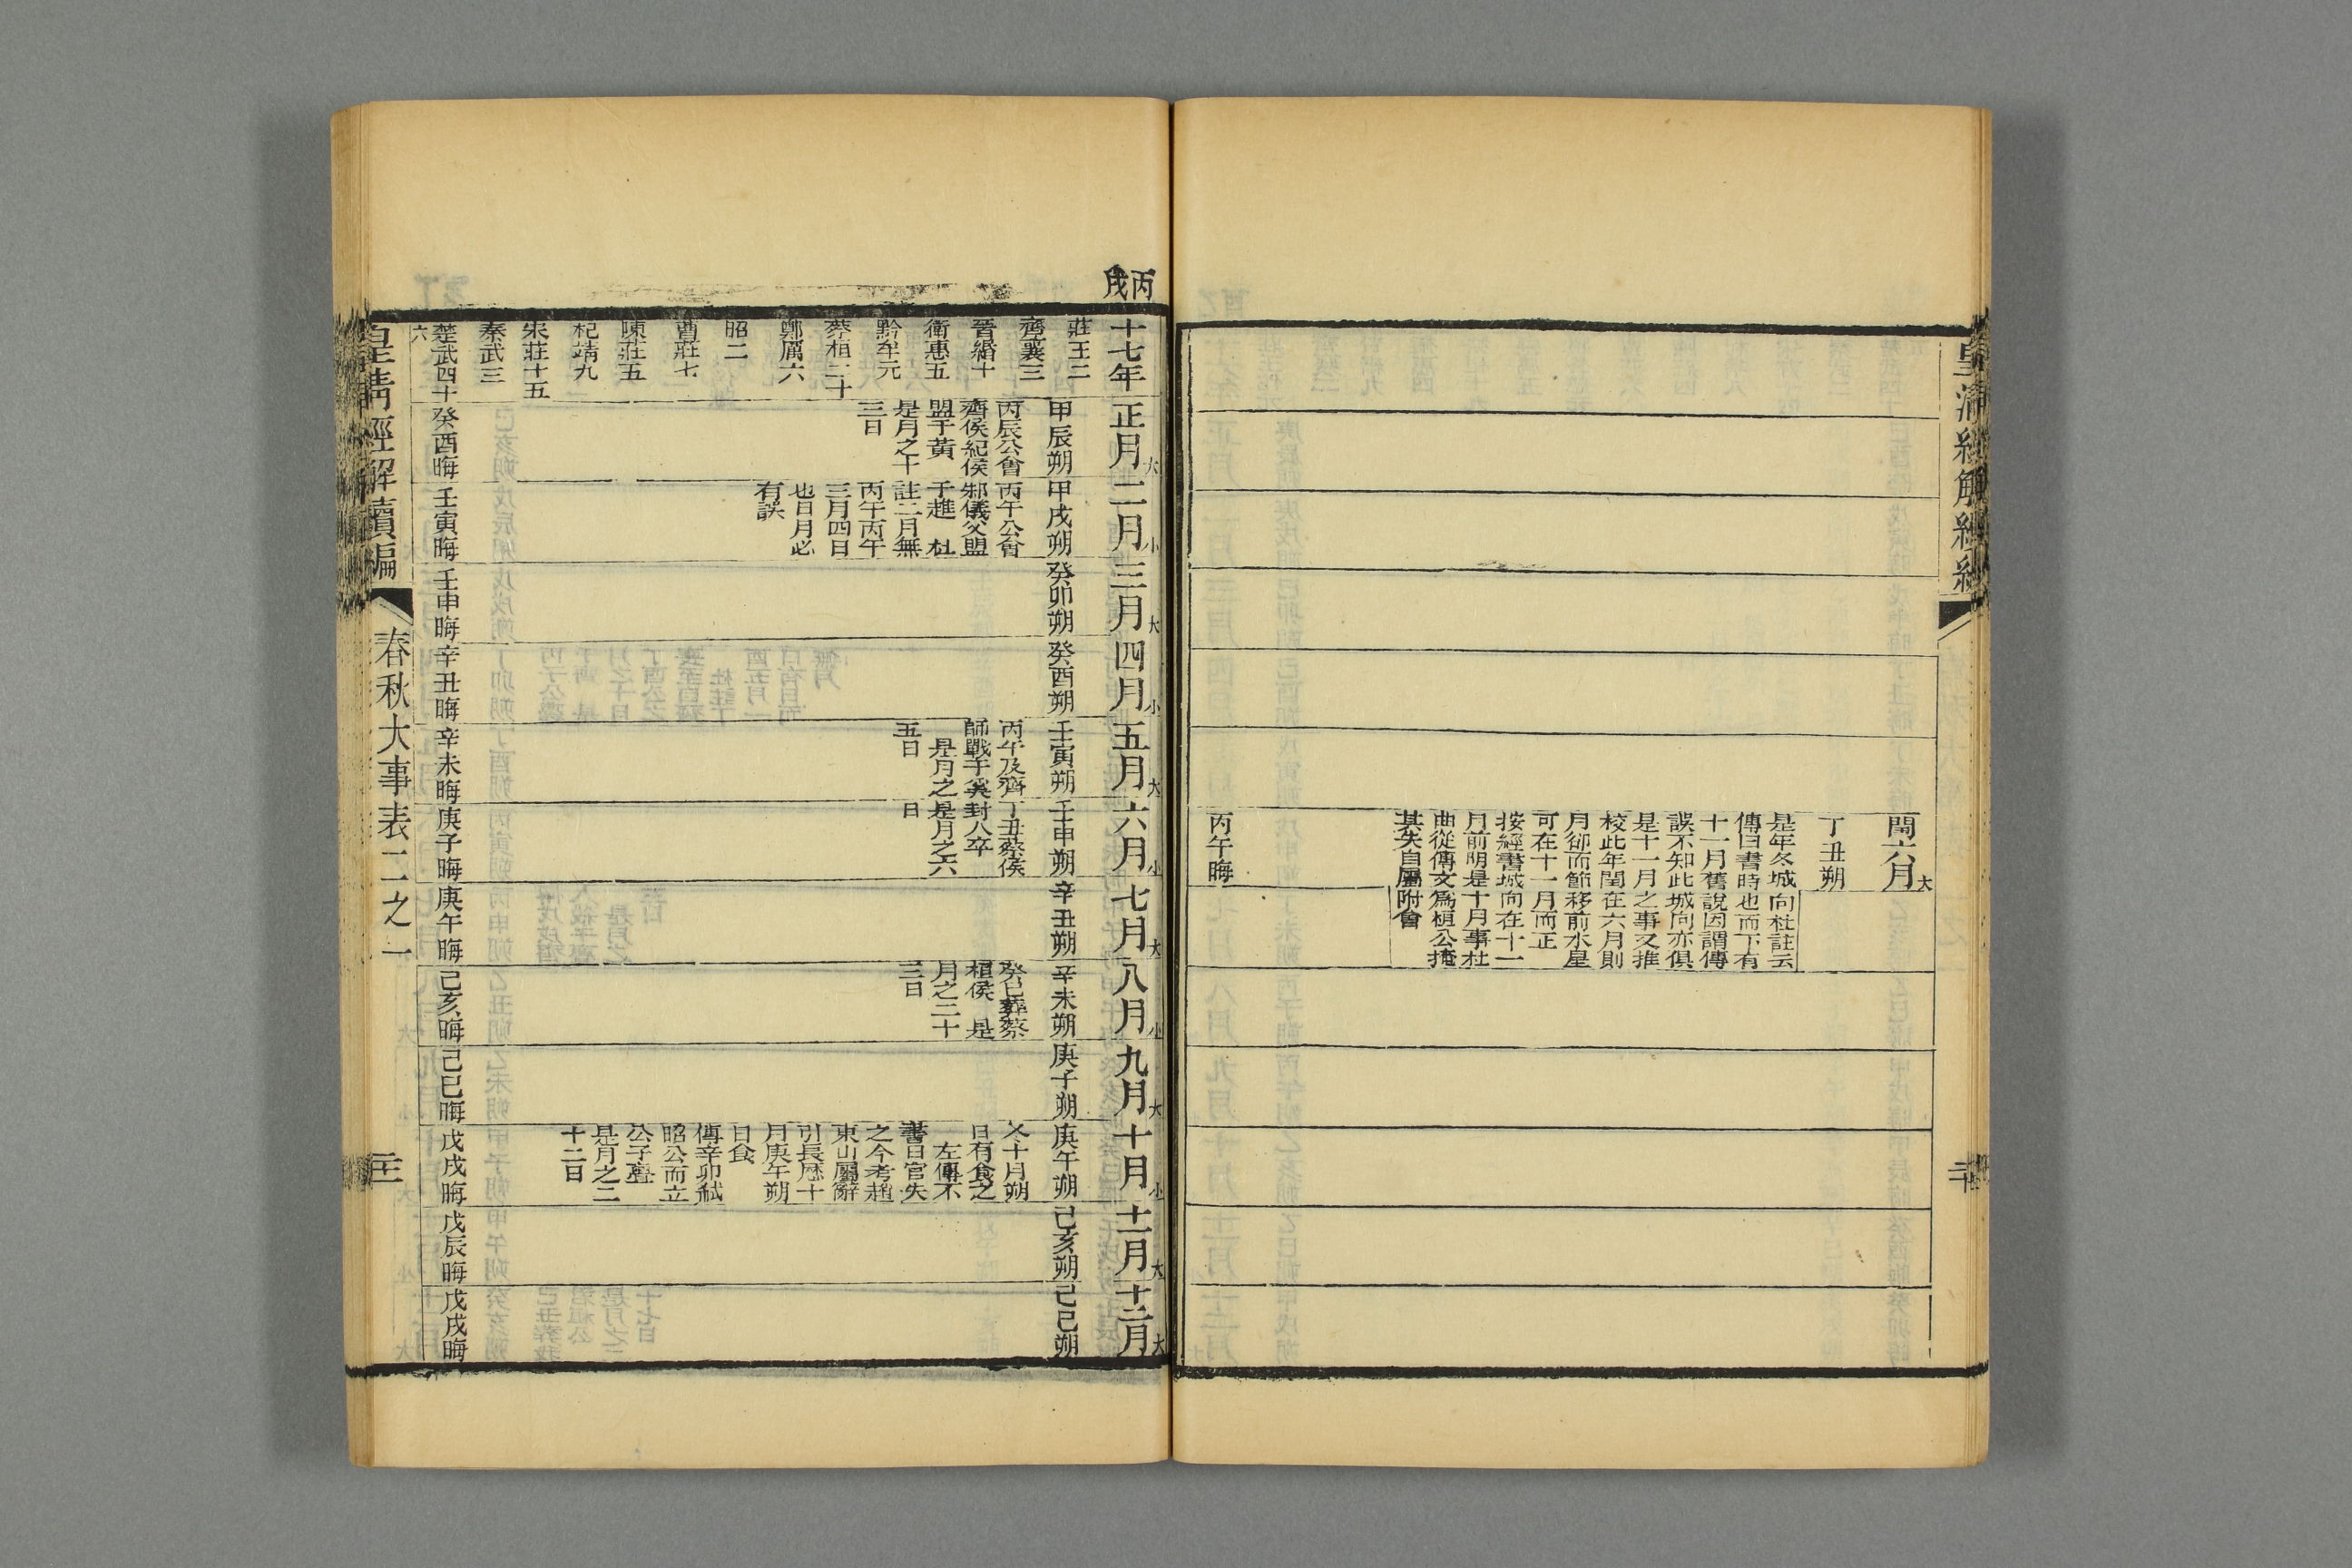 皇清經解續編
二十
閏六月大
丁丑朔
是年冬城向杜註云
傳曰書時也而下有
十一月舊說因謂傳
誤不知此城向亦俱
是十一月之事又推
校此年閏在六月則
月卻而節移前水星
可在十一月而正
按經書城向在十一
月前明是十月事杜
曲從傳文爲桓公掩
其失自屬附會
丙午晦
丙戌
十七年
莊王二
齊襄三
晉緡十
衛惠五
黔牟元
蔡桓二十
鄭厲六
昭二
曹莊七
陳莊五
杞靖九
宋莊十五
秦武三
楚武四十
六
正月大
甲辰朔
丙辰公會
齊侯紀侯
盟于黃
是月之十
三日
癸酉晦
二月小
甲戌朔
丙午公會
邾儀父盟
于趡 杜
註二月無
丙午丙午
三月四日
也日月必
有誤
壬寅晦
三月大
癸卯朔
壬申晦
四月小
癸酉朔
辛丑晦
五月大
壬寅朔
丙午及齊
師戰于奚
是月之
五日
辛未晦
六月小
壬申朔
丁丑蔡侯
封人卒
是月之六
日
庚子晦
七月大
辛丑朔
庚午晦
八月小
辛未朔
癸巳葬蔡
桓侯 是
月之二十
三日
己亥晦
九月大
庚子朔
己巳晦
十月小
庚午朔
冬十月朔
日有食之
左傳不
書日官失
之今考趙
東山屬辭
引長厯十
月庚午朔
日食
傳辛卯弒
昭公而立
公子亹
是月之二
十二日
戊戌晦
十一月大
己亥朔
戊辰晦
十二月大
己巳朔
戊戌晦
皇清經解續編
春秋大事表二之一